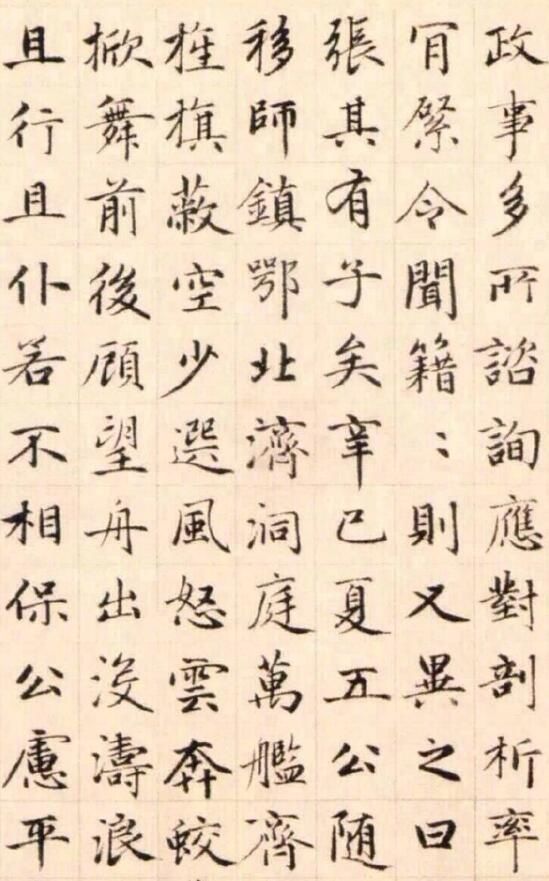 政事多所諮詢應對剖析率
冐綮令聞籍〻則又異之曰
張其有子矣辛巳夏五公随
移師鎮鄂北濟洞庭萬艦齊
旌旗蔽空少選風怒雲奔蛟
掀舞前後顧望舟出沒濤浪
且行且仆若不相保公慮平